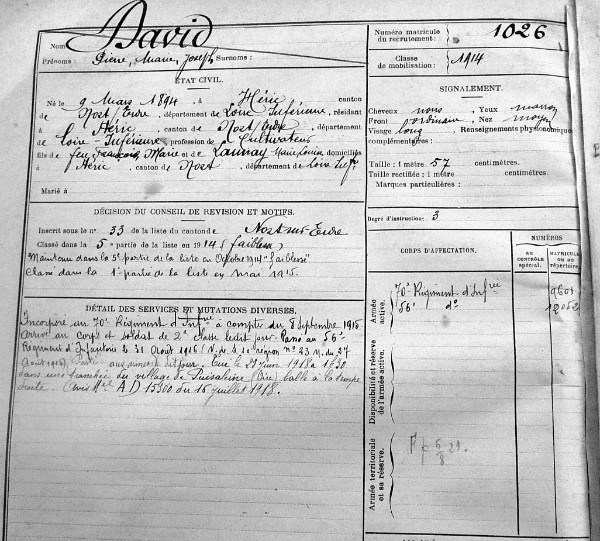 Nom David
Prénoms : Pierre, Marie, Joseph Surnoms :
Numéro matricule du recrutement : 1026
Classe de mobilisation : 1914
ÉTAT CIVIL.
Né le 9 Mars 1894, à Héric canton
de Nort/Erdre, département de Loire Inférieure, résidant
à Héric, canton de Nort/Erdre, département
de Loire-Inférieure, profession de Cultivateur
fils de feu François, Marie et de Launay Marie Louise domiciliés
à Héric, canton de Nort, département de Loire Infre
Marié à
DÉCISION DU CONSEIL DE REVISION ET MOTIFS.
Inscrit sous le n° 33 de la liste du canton de Nort sur Erdre
Classé dans la 5e partie de la liste en 1914 (faiblesse)
Maintenu dans la 5e partie de la liste en Octobre 1914 "faiblesse"
Classé dans la 1e partie de la liste en mai 1915.
DÉTAIL DES SERVICES ET MUTATIONS DIVERSES.
Incorporé au 70e Régiment d'Infrie à compter du 8 Septembre 1915
Arrivé au corps et soldat de 2e classe ledit jour. Passé au 56e
Régiment d'Infanterie le 31 Août 1916 N. de
région n° 23 M. du 27
Août 1916). aux armées dit jour. Tué le 1918 à
dans une tranchée du village de (Oise) balle à la tempe
droite. (Avis Mel A D 15300 du 16 juillet 1918.
SIGNALEMENT.
Cheveux noirs, Yeux marron
Front ordinaire, Nez moyen
Visage long, Renseignements physionomiques
complémentaires :
Taille : 1 mètre 57 centimètres.
Taille rectifiée : 1 mètre centimètres.
Marques particulières :
Degré d'instruction : 3
CORPS D'AFFECTATION.
NUMÉROS
AU CONTRÔLE spécial.
MATRICULE OU AU répertoire.
Armée active.
70e Régiment d'Infrie
56e do
Disponibilité et réserve de l'armée active.
Armée territoriale et sa réserve.